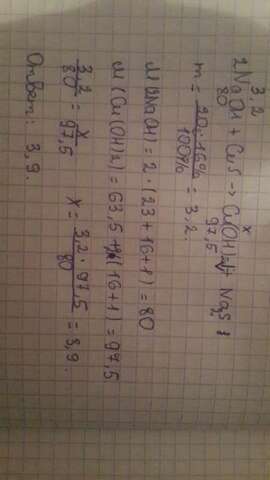 3,2 x
2NaOH + CuS -> Cu(OH)2↓ + Na2S
80 97,5
m = 20 · 16% / 100% = 3,2.
M(2NaOH) = 2 · (23 + 16 + 1) = 80
M(Cu(OH)2) = 63,5 + (16 + 1) = 97,5
3,2 / 80 = x / 97,5 x = 3,2 · 97,5 / 80 = 3,9.
Ответ: 3,9.